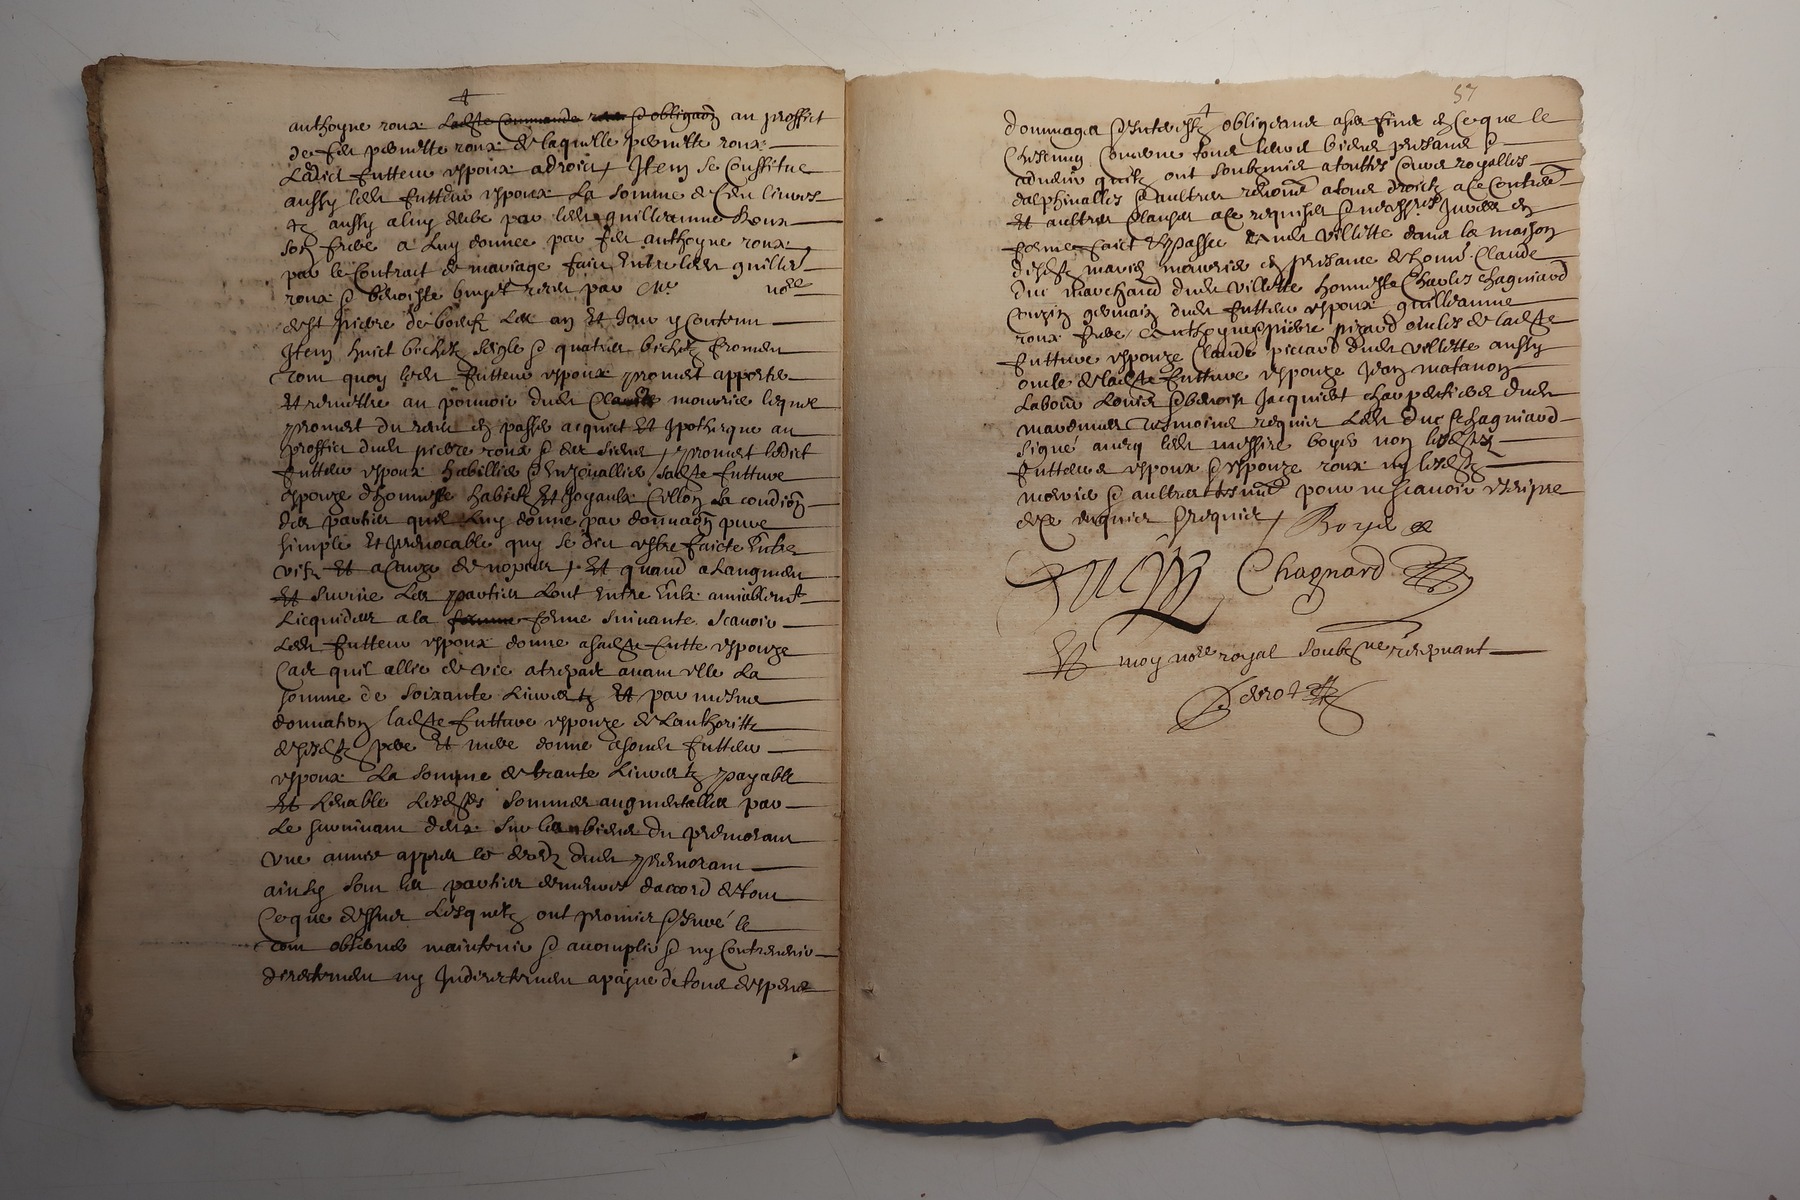 anthoyne roux ladte Commande au proffict
de feu pernette roux de laquelle pernette roux
Ledict futteur espoux a droict Item se Constitue
aussy ledt futteur espoux La somme de Cent livres
tz aussy a luy deube par ledt guilleaume Roux
son frere a luy donnee par feu anthoyne roux
par le Contract de mariage faict Entre ledt guille
roux & benoiste receu par Me nore
de St pierre de boeuf Les an Et Jour y Contenu
Item huict bichetz seigle & quatre bichetz froment
tout quoy ledt futteur espoux promet apporter
Et remettre au pouvoir dudt Claude mourier lequel
promet du receu en passer acquict Et Ipothecque au
proffict dudt pierre roux & des siens promet ledict
futteur espoux habillier & Enjouallier sadte future
espouze dhonneste habitz Et Joyaulx sellon la condion
des parties quil luy donne par donnaon pure
simple Et Irrevocable quy se dict estre faicte Entre
vifz Et a Cauze de nopces Et quand a Laugment
Et survie Les parties Lont Entre Eulx amiablemt
Liequidee a la forme suivante Scavoir
Ledt futteur espoux donne a sadte futte espouze
Cas quil allie de vie a trepas avant elle La
somme de soixante Livres tz Et par mesme
donnation ladte future espouze de Lauthoritte
desdtz pere Et mere donne a sondt futteur
espoux La somme de trante Livres tz payable
Et Levable Lesdtes sommes augmentalles par
Le survivant deux sur les biens du premorant
Une annee appres le decedz dudt premorant
ainsy sont les parties demeures daccord de tout
Ceque dessus Lesquelz ont promis & Juré le
tout observer maintenir & accomplir & ny Contrevenir
directement ny Indirectement a payne de tous despens
57
dommages & Interestz obligeant a ses fins en Ce que le
Chescung Concerne tous leurs biens presans &
advenir quilz ont soubzmis a touttes Cours royalles
dalphinalles & aultres renonce a tous droictz a Ce Contre
Et aultres Clauses a Ce requises & necessres Jurees en
forme faict & passee audt villette dans la maison
desdtz mariez mourier en presance de honn Claude
duc marchand dudt villette honneste Charles Chagniard
Cousin germain dudt futteur espoux guilleaume
roux frere anthoyne & pierre pizard oncles de ladte
future espouze Claude piccard dudt villette aussy
oncle de ladte future espouze Jean matanon
Labour Lonis & benoist Jacquiet charpentier dudt
tesmoins requis Ledt duc & Chagniard
signé avecq ledt messire boyer non lesdtz
futteurs espoux & espouze roux ny lesdtz
mourier & aultres tesmt pour ne scavoir escripre
de Ce enquis & requis Boyer
Duc Chagnard
Et moy nore royal soubzne recepvant